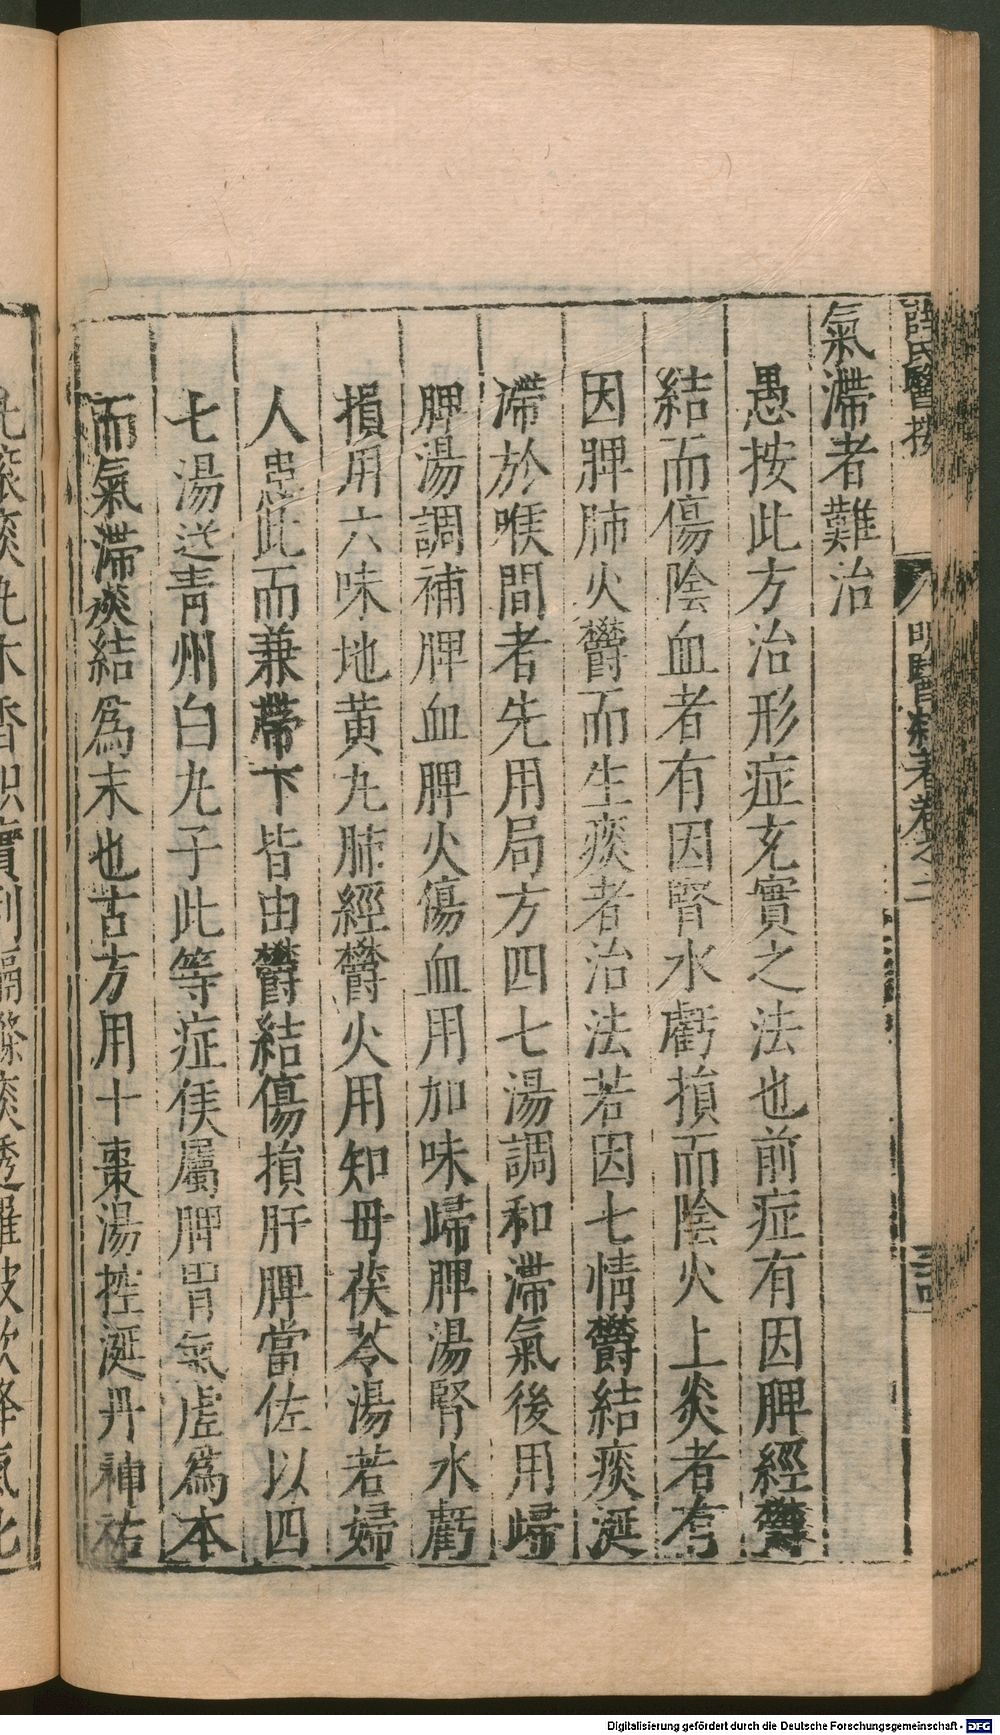 薛氏醫按
明醫雜著卷之二
氣滯者難治
愚按此方治形症充實之法也前症有因脾經欝
結而傷陰血者有因腎水虧損而陰火上炎者有
因脾肺火欝而生痰者治法若因七情欝結痰涎
滯於喉間者先用局方四七湯調和滯氣後用歸
脾湯調補脾血脾火傷血用加味歸脾湯腎水虧
損用六味地黄丸肺經欝火用知母茯苓湯若婦
人患此而兼帶下皆由欝結傷損肝脾當佐以四
七湯送青州白丸子此等症俟屬脾胃氣虛爲本
而氣滯痰結爲末也古方用十棗湯控涎丹神祐
丸滚痰丸木香枳實利膈滌痰透羅破飲降氣化
Digitalisierung gefördert durch die Deutsche Forschungsgemeinschaft - DFG